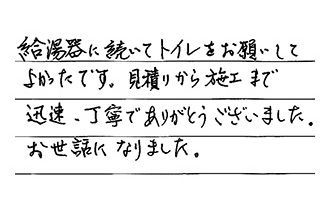 給湯器に続いてトイレをお願いして
よかったです。見積りから施工まで
迅速、丁寧でありがとうございました.
お世話になりました。